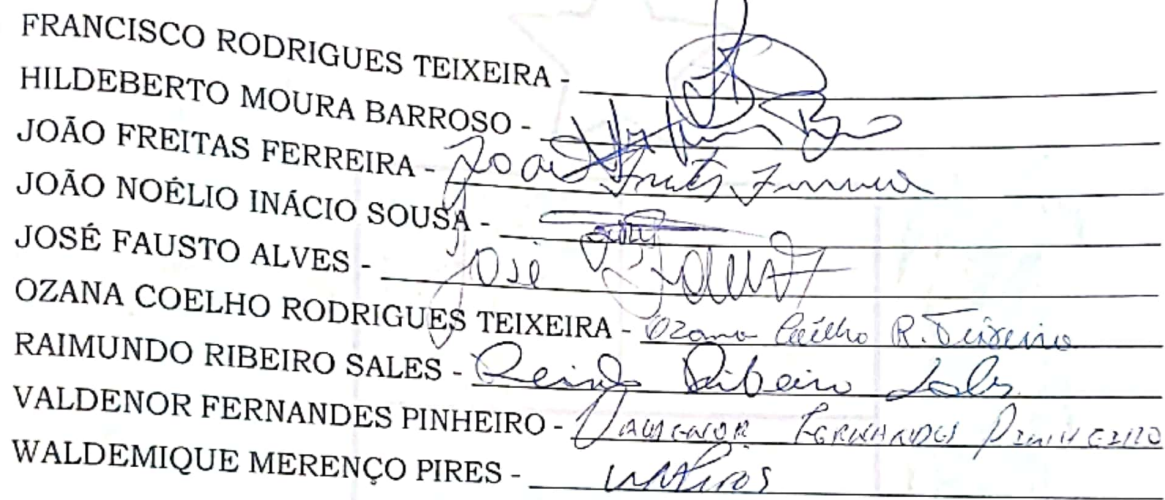 FRANCISCO RODRIGUES TEIXEIRA -
HILDEBERTO MOURA BARROSO -
JOÃO FREITAS FERREIRA - João Freitas Ferreira
JOÃO NOÉLIO INÁCIO SOUSA -
JOSÉ FAUSTO ALVES - José Fausto
OZANA COELHO RODRIGUES TEIXEIRA - Ozana Coêlho R. Teixeira
RAIMUNDO RIBEIRO SALES - Ribeiro Sales
VALDENOR FERNANDES PINHEIRO - VALDENOR FERNANDES PINHEIRO
WALDEMIQUE MERENÇO PIRES - WMPires